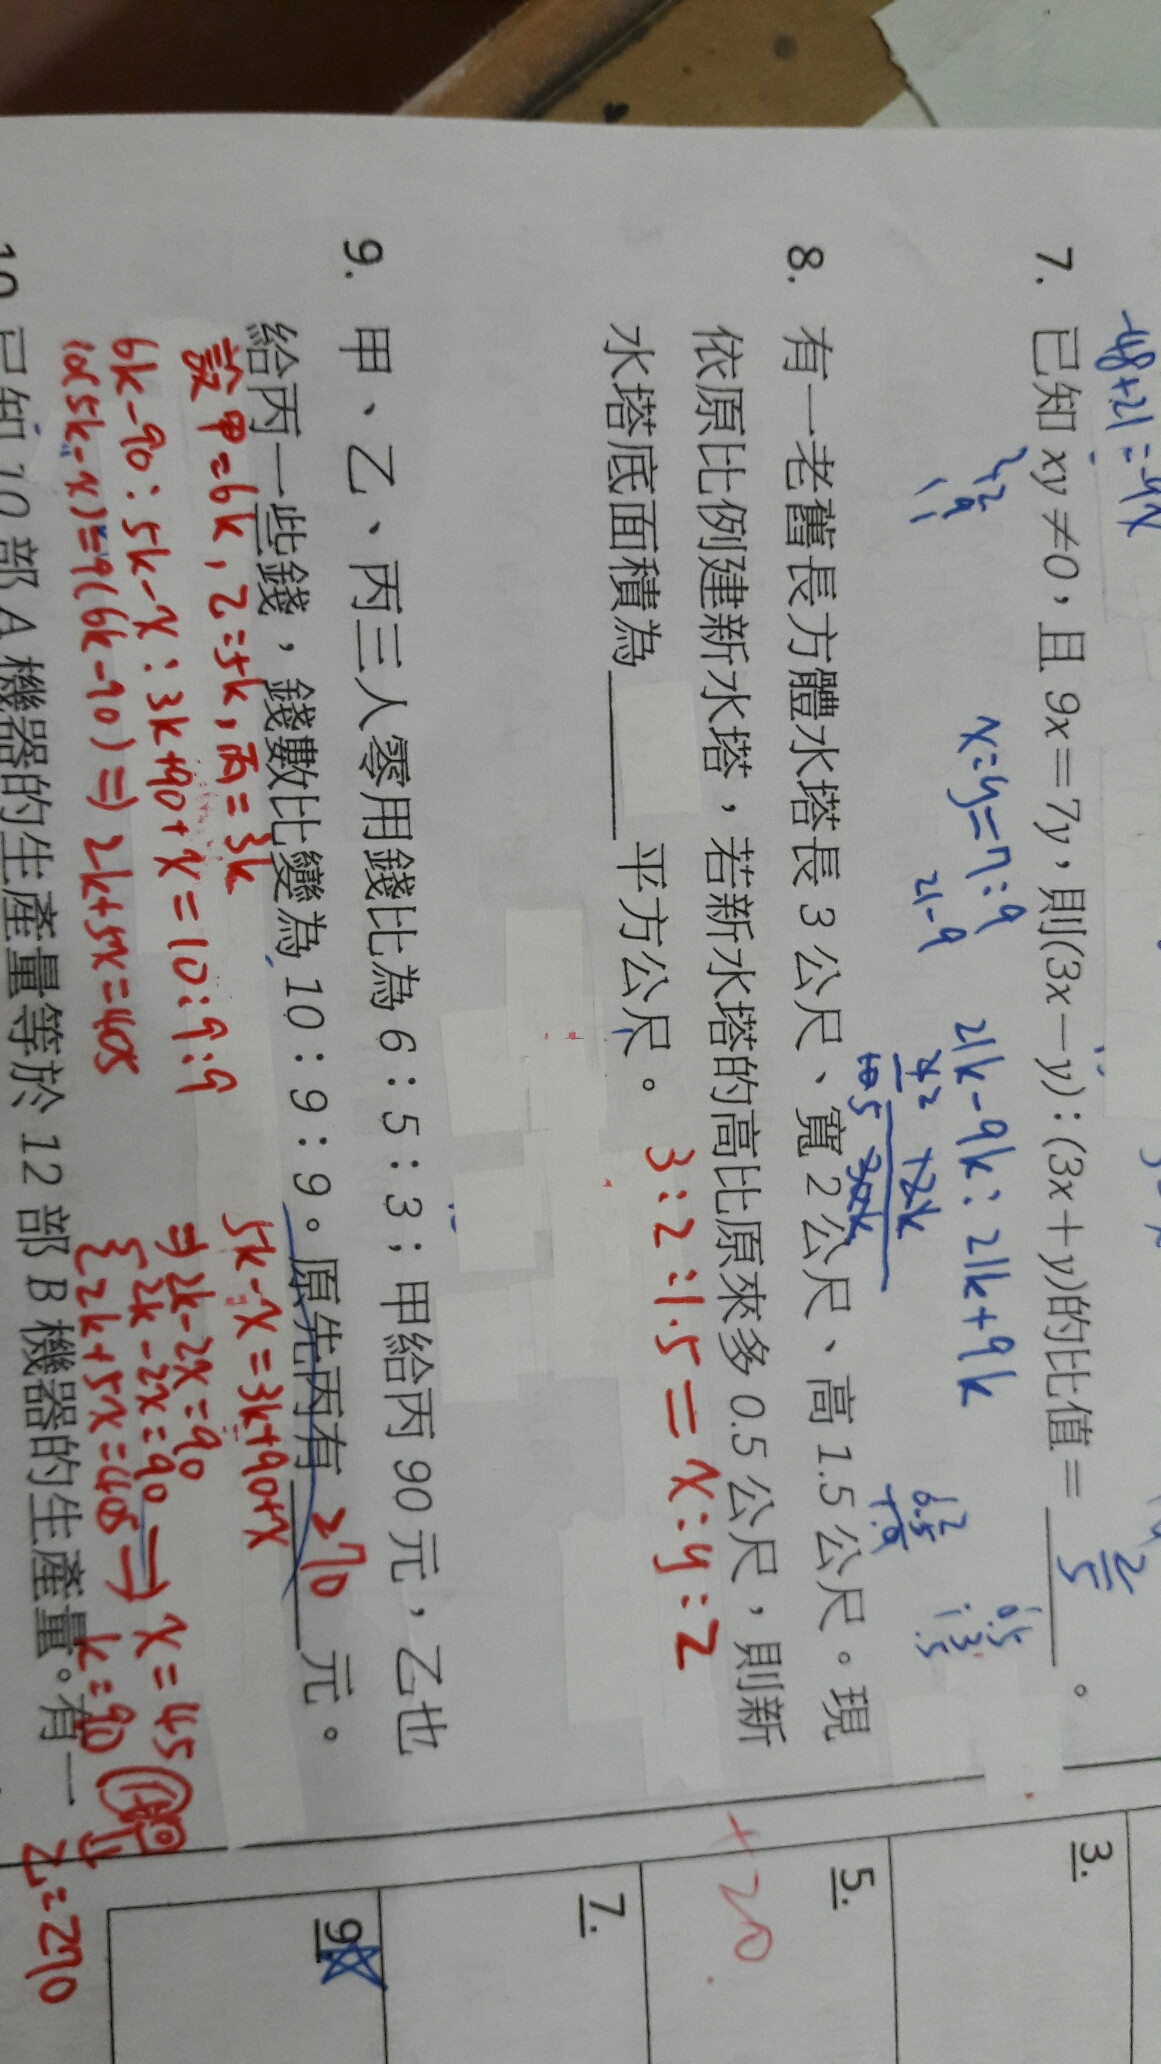 -48+21=-9x
7. 已知 xy≠0，且 9x=7y，則(3x－y)：(3x＋y)的比值= 2/5 。
x:y=7:9
21k-9k:21k+9k
21-9
12k
30k
8. 有一老舊長方體水塔長 3 公尺、寬 2 公尺、高 1.5 公尺。現
依原比例建新水塔，若新水塔的高比原來多 0.5 公尺，則新
水塔底面積為______平方公尺。
3:2:1.5=x:y:2
9. 甲、乙、丙三人零用錢比為 6：5：3；甲給丙 90 元，乙也
給丙一些錢，錢數比變為 10：9：9。原先丙有 270 元。
設甲=6k,乙=5k,丙=3k
6k-90:5k-x:3k+90+x=10:9:9
10(5k-x)=9(6k-90)⇒2k+5x=405
5k-x=3k+90+x
⇒2k-2x=90
{2k-2x=90
2k+5x=405 ⇒ x=45
k=90
270
10 已知 10 部 A 機器的生產量等於 12 部 B 機器的生產量。有一
3.
5.
+20
7.
9